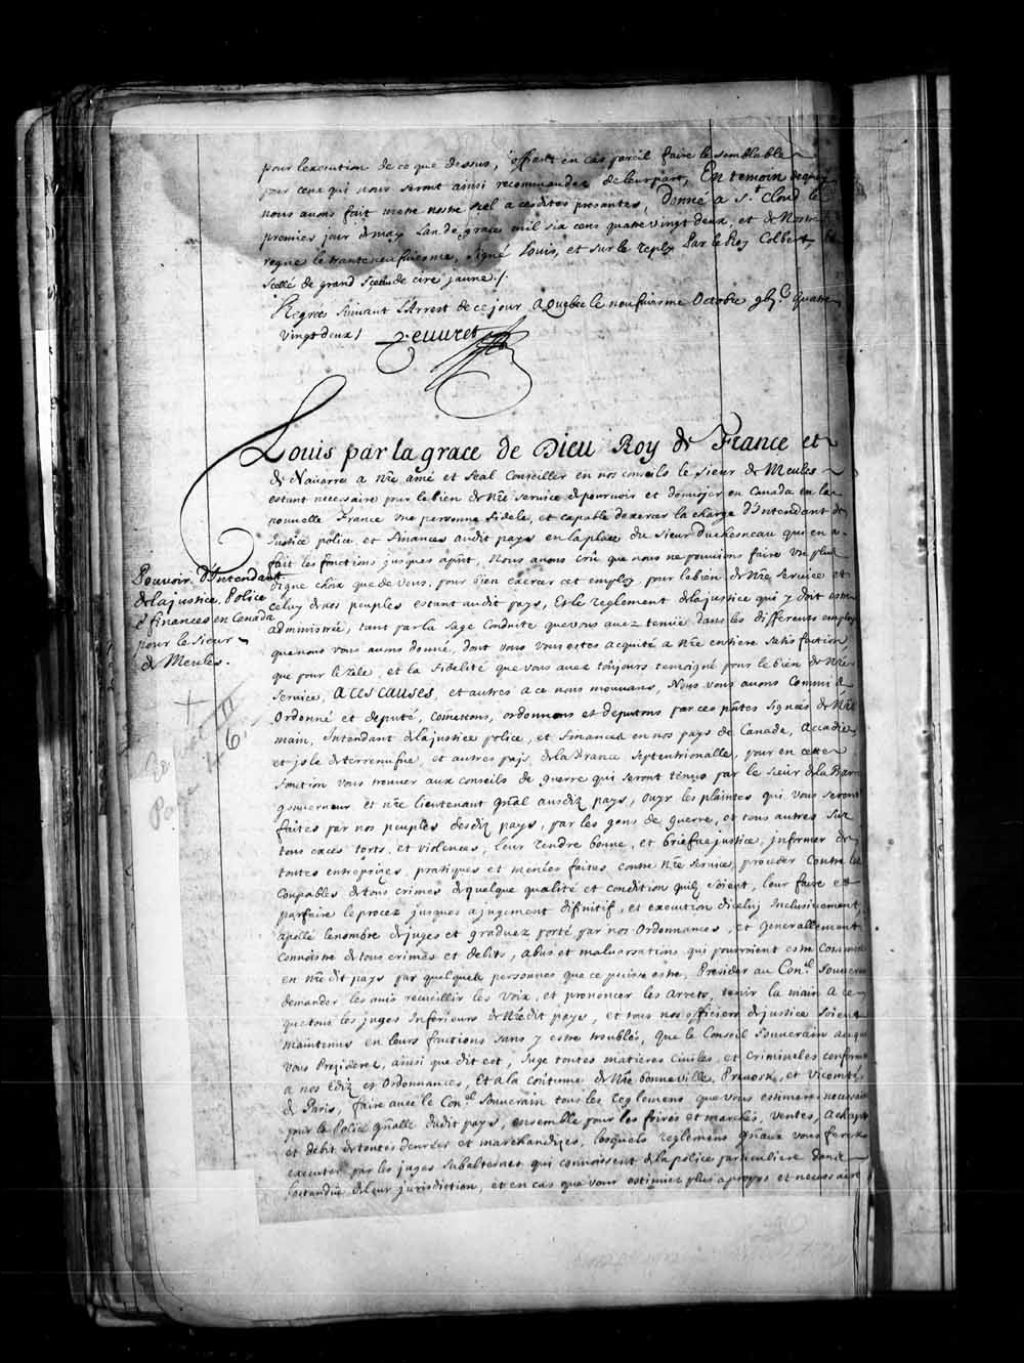 pour l'execution de ce que dessus, offrant en cas pareil faire le semblable
pour ceux qui nous seront ainsi recommandez de leur part, En temoin dequoy
nous avons fait metre nostre scel a cesdites presentes, Donné a St Cloud le
premier jour de may L'an de grace mil six cens quatre vingt deux et de Nostre
regne le trente neufuiesme, signé Louis, et sur le reply Par le Roy Colbert
scellé de grand Sceau de cire jaune /.
Regrées suiuant l'Arrest de ce jour A Quebec le neufuiesme Octobre gbj.C quatre
vingt deux /
Peuuret
Louis par la grace de Dieu Roy de France et
de Nauarre a nre amé et feal Conseiller en nos conseils le sieur de Meules
estant necessaire pour le bien de nre seruice de pouruoir et d'enuoyer en Canada en la
nouuelle France vne personne fidele, et capable d'exercer la charge d'Intendant de
Justice police et finances audit pays en la place du sieur Duchesneau qui en a
fait les fonctions jusques apnt, Nous auons crû que nous ne pouuions faire vn plus
digne choix que de vous, pour bien exercer cet employ pour le bien de nre seruice et
celuy de nos peuples estant audit pays, Et le reglement de la justice qui y doit estre
administrée, tant par la sage conduite que vous auez tenüe dans les differents employs
que nous vous auons donné, dont vous vous estes acquité a nre entiere satisfaction,
que pour le zele, et la fidelité que vous auez toûjours temoigné pour le bien de nre
seruice, A CES CAUSES, et autres a ce nous mouuans, Nous vous auons Commis
Ordonné et deputé, Cômettons, ordonnons et deputons par ces pntes signées de nre
main, Intendant de la justice police, et finances en nos pays de Canada, Accadie
et isle de terreneufue, et autres pays de la France septentrionalle, pour en cette
fonction vous trouuer aux conseils de guerre qui seront tenus par le sieur de la Barre
gouuerneur et nre lieutenant gnal ausdiz pays, Ouyr les plaintes qui vous seront
faites par nos peuples desdiz pays, par les gens de guerre, et tous autres sur
tous excés torts, et violences, leur rendre bonne, et briefue justice, informer de
toutes entreprises, pratiques et menées faites contre nre seruice, proceder contre les
Coupables de tous crimes de quelque qualité et condition quilz soient, leur faire et
parfaire le procez jusques a jugement difinitif, et execution d'iceluy Inclusiuement,
apellé le nombre de juges et graduez porté par nos Ordonnances, et Generallement
connoistre de tous crimes et delits, abus et maluersations qui pourroient estre Commis
en nre dit pays par quelques personnes que ce puisse estre, Presider au Conel Souuerain
demander les auis recueillir les voix, et prononcer les Arrets, tenir la main a ce
que tous les juges Inferieurs de nre dit pays, et tous nos officiers de justice soient
maintenus en leurs fonctions sans y estre troublés, que le Conseil Souuerain auquel
vous Presiderez, ainsi que dit est, Juge toutes matieres Ciuiles, et Crimineles conforme
a nos Ediz et Ordonnances, Et a la coûtume de nre bonne ville, Preuosté, et Vicomté
de Paris, faire auec le Conel Souuerain tous les reglemens que vous estimerez necessaires
pour la Police gnalle dudit pays, ensemble pour les foires et marchés, ventes, Achapts
et debit de toutes denrées et marchandizes, lesquels reglemens gnaux vous ferez
executer par les juges subalternes qui connoissent de la police particuliere dans
l'estendüe de leur jurisdiction, et en cas que vous estimiez plus a propos et necessaire
Pouuoir d'Intendant
de la justice, Police
& finances en Canada
pour le Sieur
de Meules.